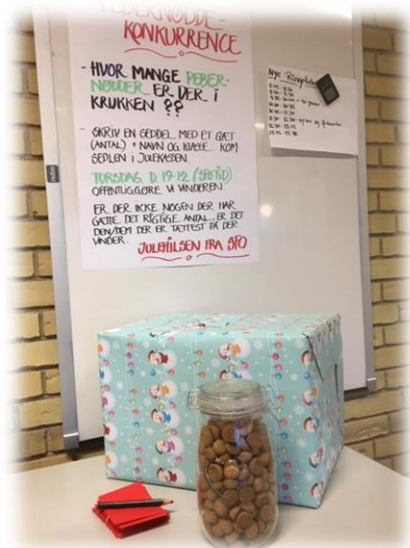 PEBERNØDDE-
KONKURRENCE
- HVOR MANGE PEBER-
NØDDER ER DER I
KRUKKEN ??
- SKRIV EN SEDDEL MED ET GÆT
(ANTAL) + NAVN OG KLASSE. KOM
SEDLEN I JULEKASSEN.
TORSDAG D. 19-12 (SFOTID)
OFFENTLIGGØRE VI VINDEREN.
ER DER IKKE NOGEN DER HAR
GÆTTE DET RIGTIGE ANTAL, ER DET
DEN/DEM DER ER TÆTTEST PÅ DER
VINDER.
JULEHILSEN FRA SFO
Nye Ringetider